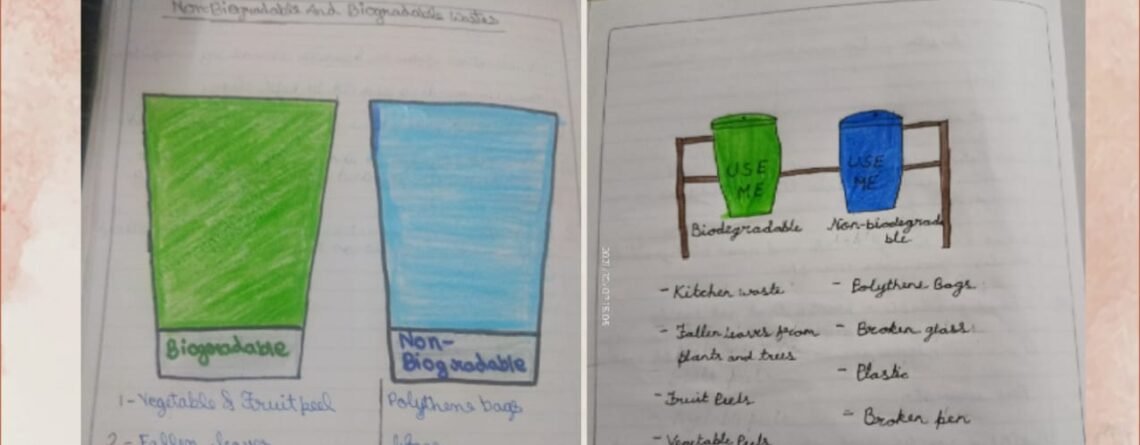 Non-Biogradable And Biogradable Wastes
Biogradable
Non-
Biogradable
1- Vegetable & Fruit peel
2- Fallen leaves
Polythene bags
USE
ME
USE
ME
Biodegradable
Non-biodegrada
ble
- Kitchen waste
- Fallen leaves from
plants and trees
- Fruit Peels
- Vegetable Peels
- Polythene Bags
- Broken glass
- Plastic
- Broken pen